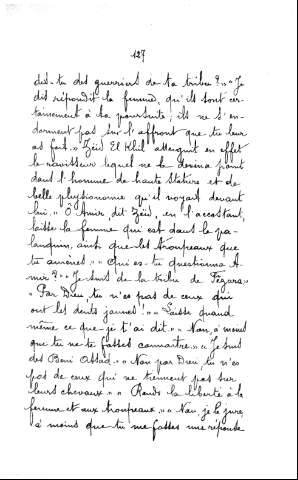 127
dis-tu des guerriers de ta tribu ? » « Je
dis répondit la femme, qu'ils sont cer-
tainement à ta poursuite ; ils ne s'en-
dorment pas sur l'affront que tu leur
as fait. » Zéid El Khil atteignit en effet
le ravisseur lequel ne le devina point
dans l'homme de haute stature et de
belle physionomie qu'il voyait devant
lui. « Ô Amir dit Zéid, en l'accostant,
laisse la femme qui est dans le pa-
lanquin, ainsi que les troupeaux que
tu amènes. » « Qui es-tu questionna A-
mir ? » « Je suis de la tribu de Fézara »
« Par Dieu tu n'es pas de ceux qui
ont les dents jaunes. » « Laisse quand
même ce que je t'ai dit. » « Non, à moins
que tu ne te fasses connaître. » « Je suis
des Beni Assad. » « Non par Dieu, tu n'es
pas de ceux qui ne tiennent pas sur
leurs chevaux » « Rends la liberté à la
femme et aux troupeaux. » « Non, je le jure,
à moins que tu me fasses une réponse